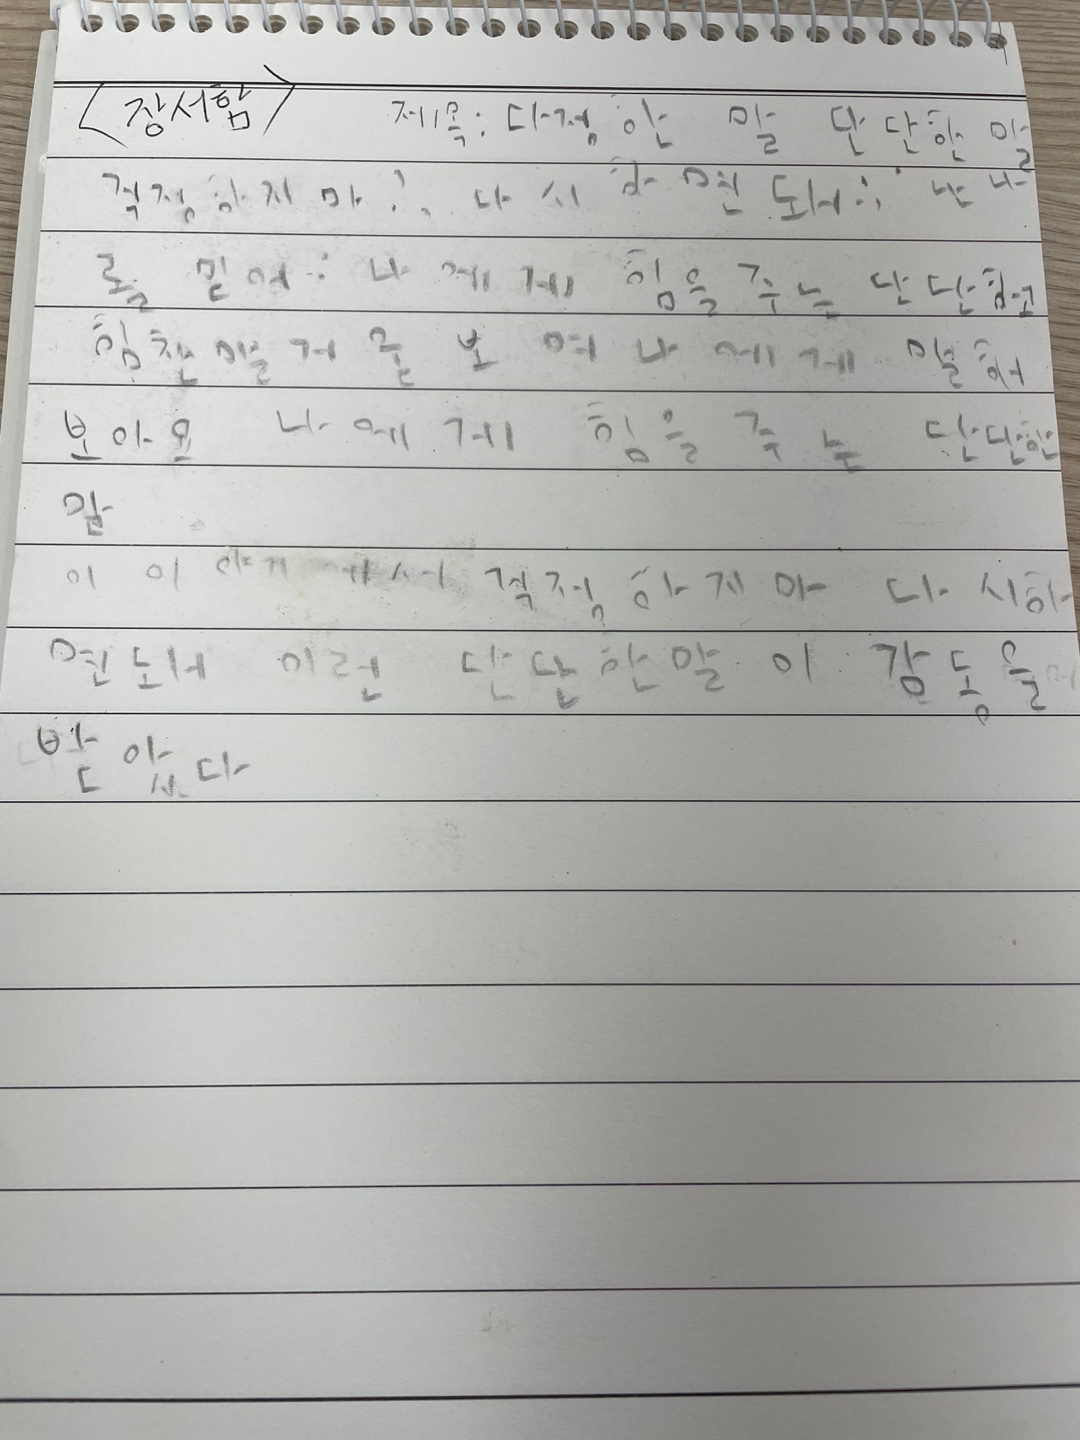 <장서함> 제목: 다정한 말 단단한 말
걱정하지마! 다시 하면 돼! 난 나
를 믿어! 나에게 힘을 주는 단단하고
힘찬 말 거울 보며 나에게 말해
보아요 나에게 힘을 주는 단단한
말
이 이야기에서 걱정하지마 다시하
면 도ㅐ 이런 단단한말이 감동을
받았다